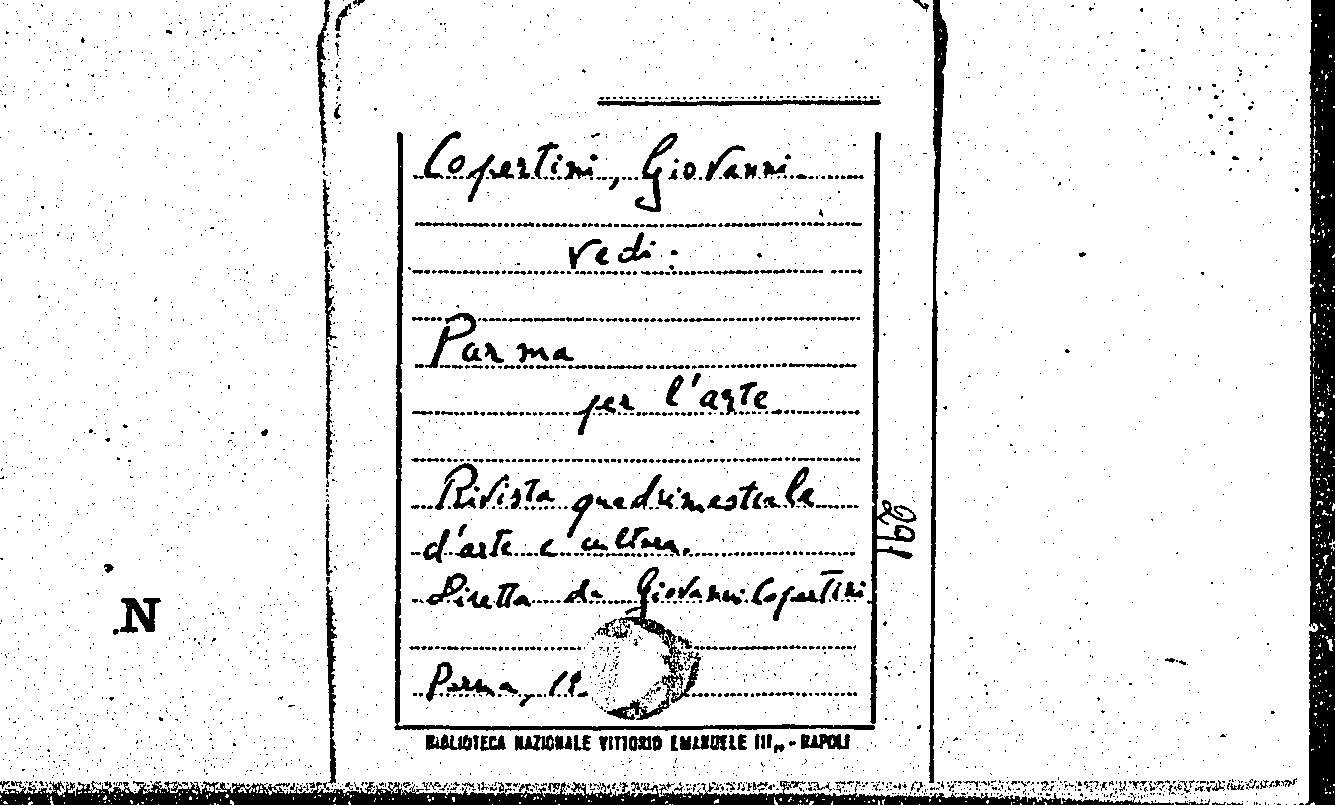 Copertini, Giovanni.
vedi:
Parma
per l'arte
Rivista quadrimestrale
d'arte e cultura.
Diretta da Giovanni Copertini
Parma, 19
BIBLIOTECA NAZIONALE VITTORIO EMANUELE III,, - NAPOLI
291
N